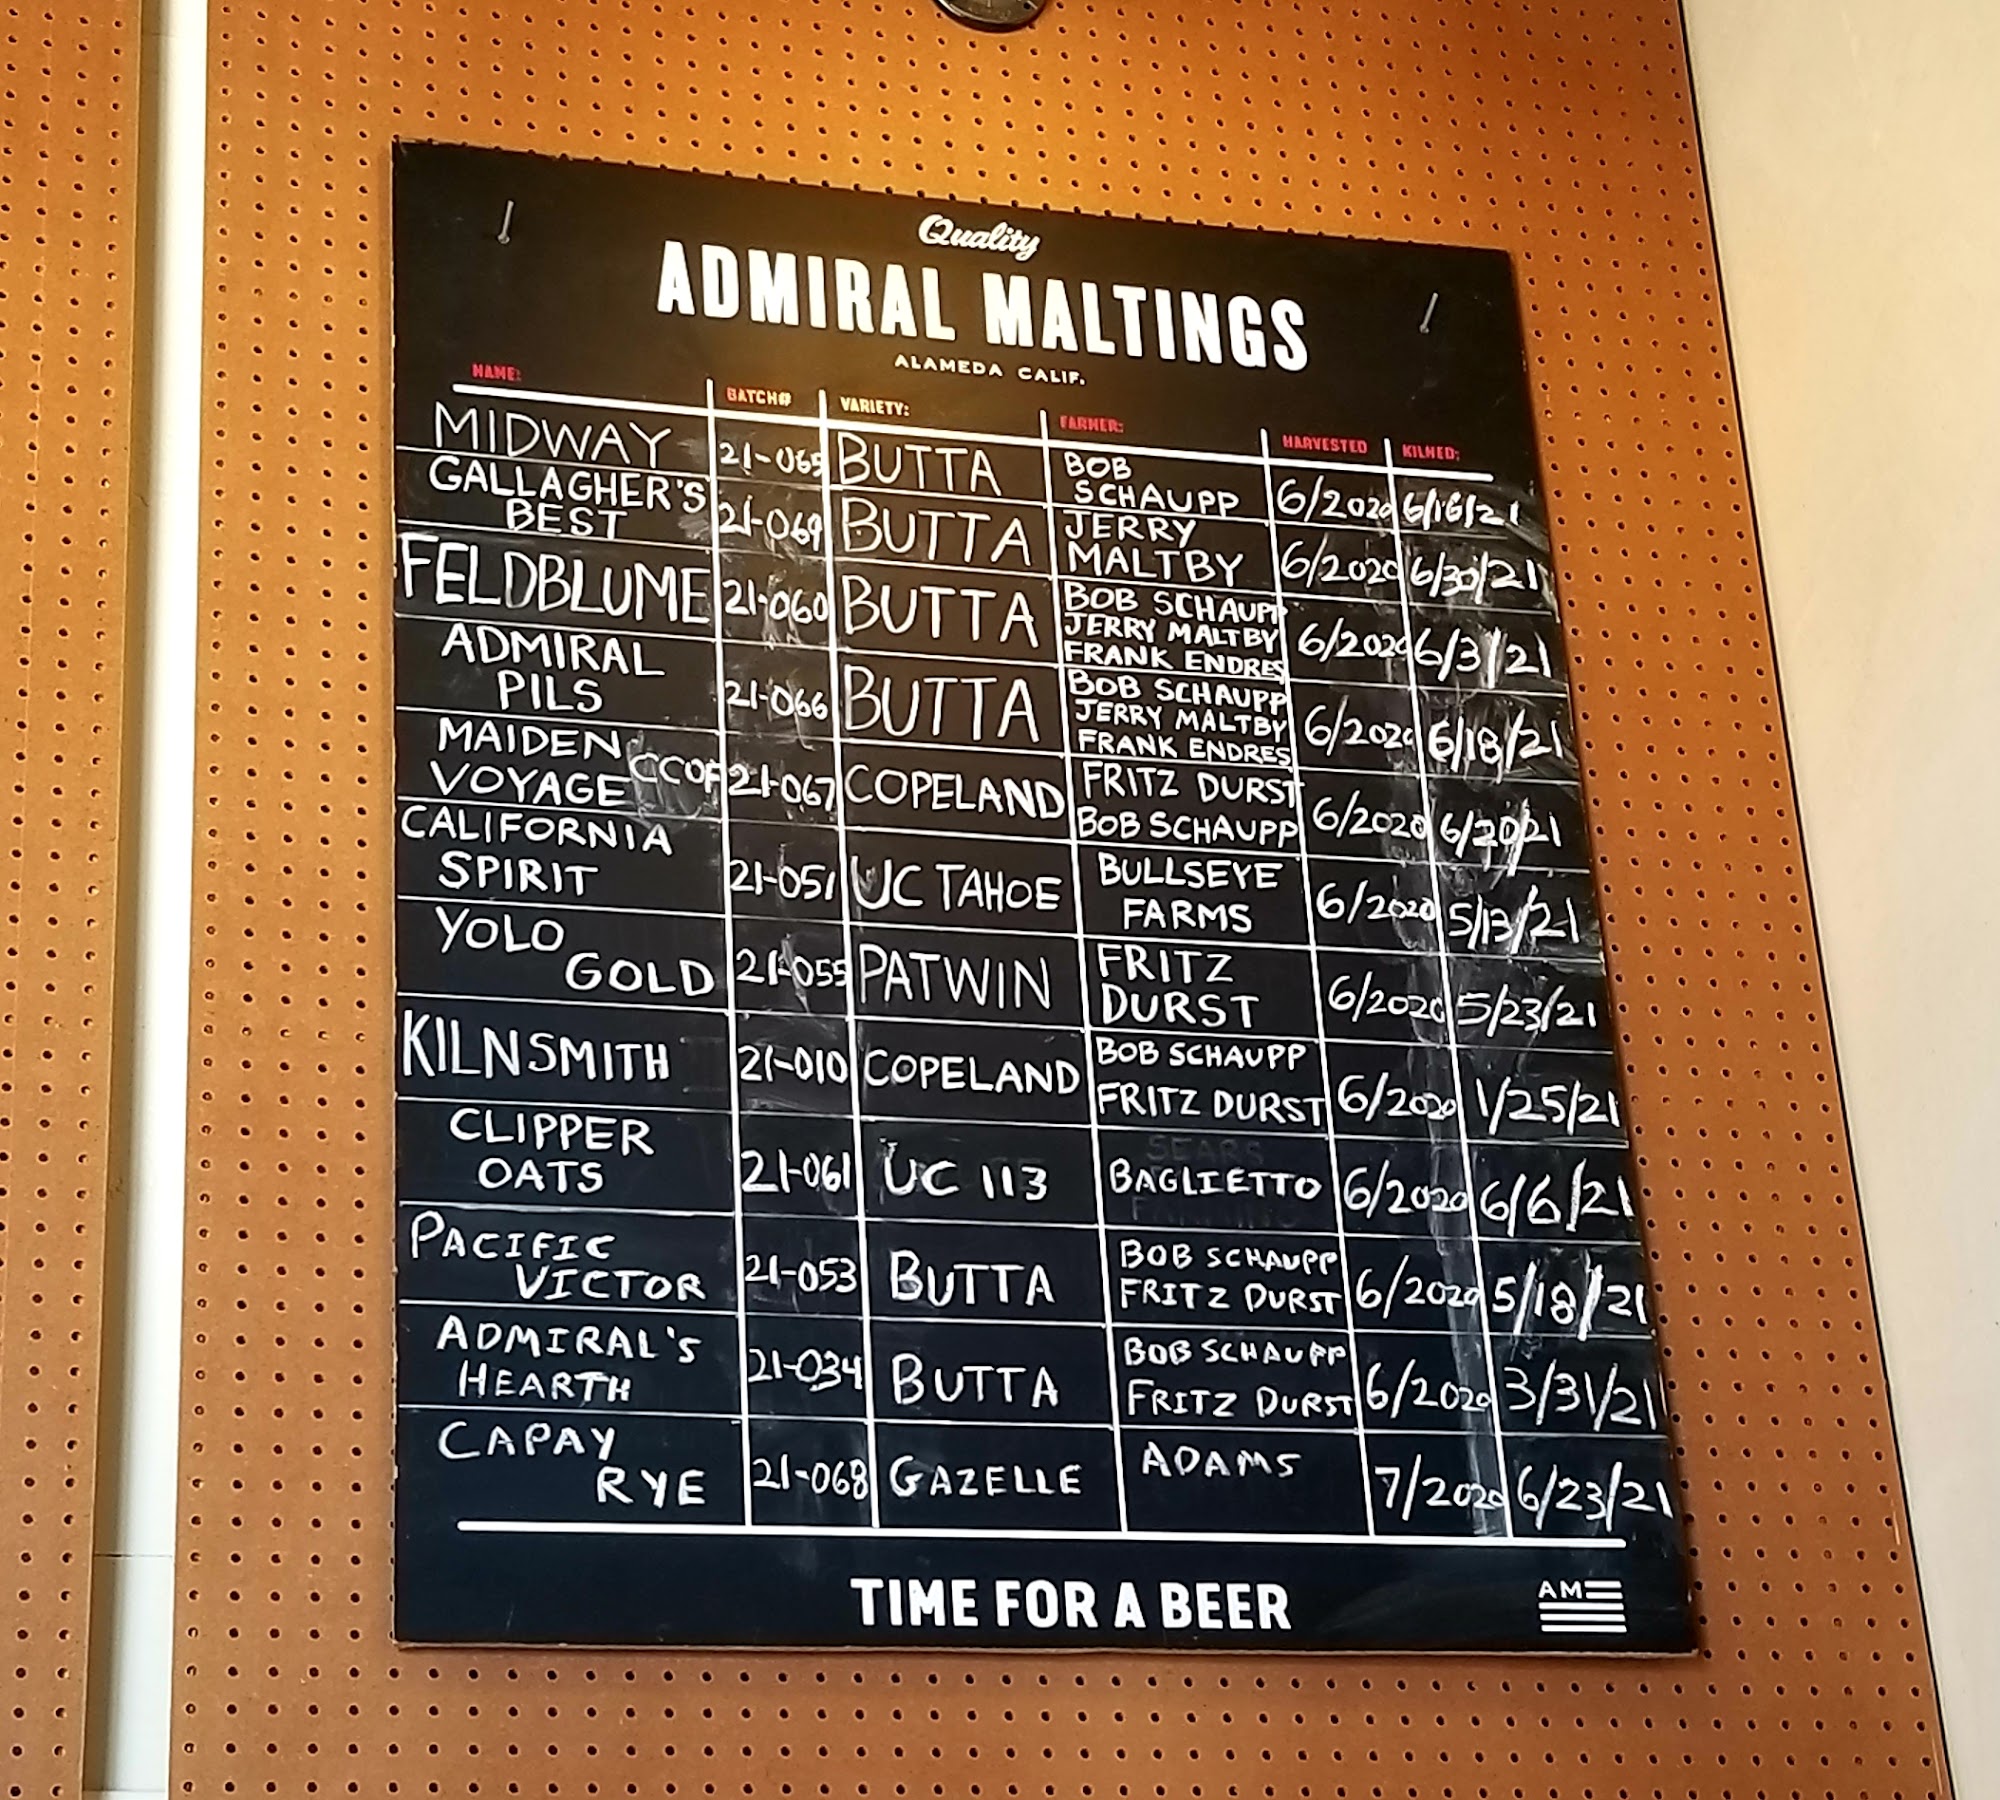 Quality
ADMIRAL MALTINGS
ALAMEDA CALIF.
NAME: BATCH# VARIETY: FARMER: HARVESTED KILNED:
MIDWAY 21-065 BUTTA BOB SCHAUPP 6/2020 6/16/21
GALLAGHER'S BEST 21-069 BUTTA JERRY MALTBY 6/2020 6/30/21
FELDBLUME 21-060 BUTTA BOB SCHAUPP JERRY MALTBY FRANK ENDRES 6/2020 6/3/21
ADMIRAL PILS 21-066 BUTTA BOB SCHAUPP JERRY MALTBY FRANK ENDRES 6/2020 6/18/21
MAIDEN VOYAGE CCOF 21-067 COPELAND FRITZ DURST BOB SCHAUPP 6/2020 6/20/21
CALIFORNIA SPIRIT 21-051 UC TAHOE BULLSEYE FARMS 6/2020 5/13/21
YOLO GOLD 21-055 PATWIN FRITZ DURST 6/2020 5/23/21
KILNSMITH 21-010 COPELAND BOB SCHAUPP FRITZ DURST 6/2020 1/25/21
CLIPPER OATS 21-061 UC 113 BAGLIETTO 6/2020 6/6/21
PACIFIC VICTOR 21-053 BUTTA BOB SCHAUPP FRITZ DURST 6/2020 5/18/21
ADMIRAL'S HEARTH 21-034 BUTTA BOB SCHAUPP FRITZ DURST 6/2020 3/31/21
CAPAY RYE 21-068 GAZELLE ADAMS 7/2020 6/23/21
TIME FOR A BEER
AM